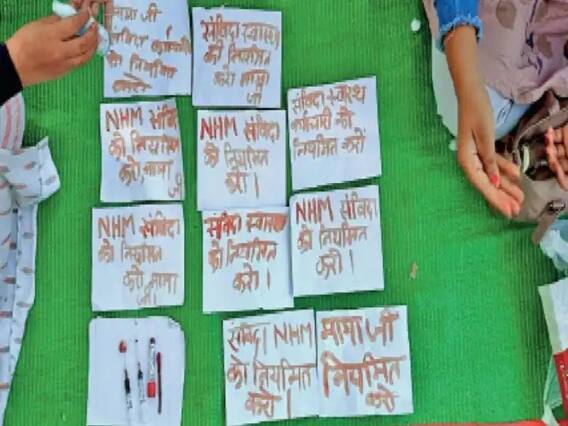 मामा जी
संविदा कर्मचारी
को नियमित
करो
संविदा स्वास्थ्य
को नियमित
करो मामा
जी
NHM संविदा
को नियमित
करो मामा
जी
NHM संविदा
को नियमित
करो ।
संविदा स्वास्थ्य
कर्मचारी को
नियमित करों
NHM संविदा
को नियमित
करो मामा
जी।
संविदा स्वास्थ्य
को नियमित
करो ।
NHM संविदा
को नियमित
करो ।
संविदा NHM
को नियमित
करो ।
मामा जी
नियमित
करो